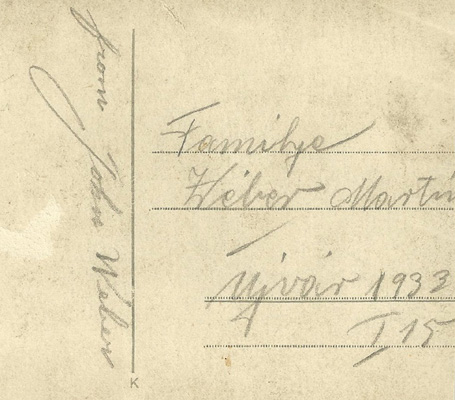 from John Weber
Familye
Wéber Martin
Ujvár 1933
I 15
K